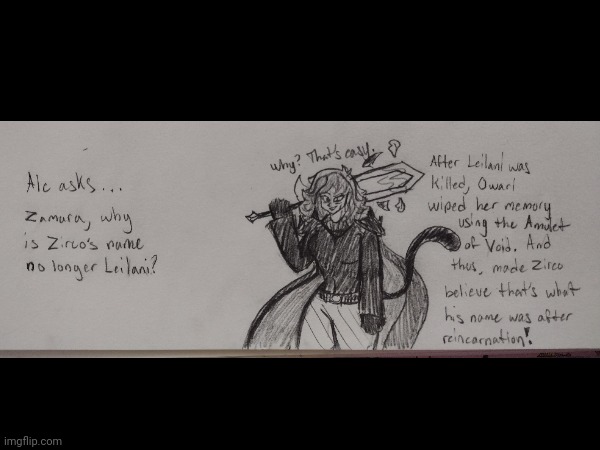 Alc asks...
Zamura, why
is Zirco's name
no longer Leilani?
why? That's easy.
After Leilani was
killed, Owari
wiped her memory
using the Amulet
of Void. And
thus, made Zirco
believe that's what
his name was after
reincarnation!
imgflip.com